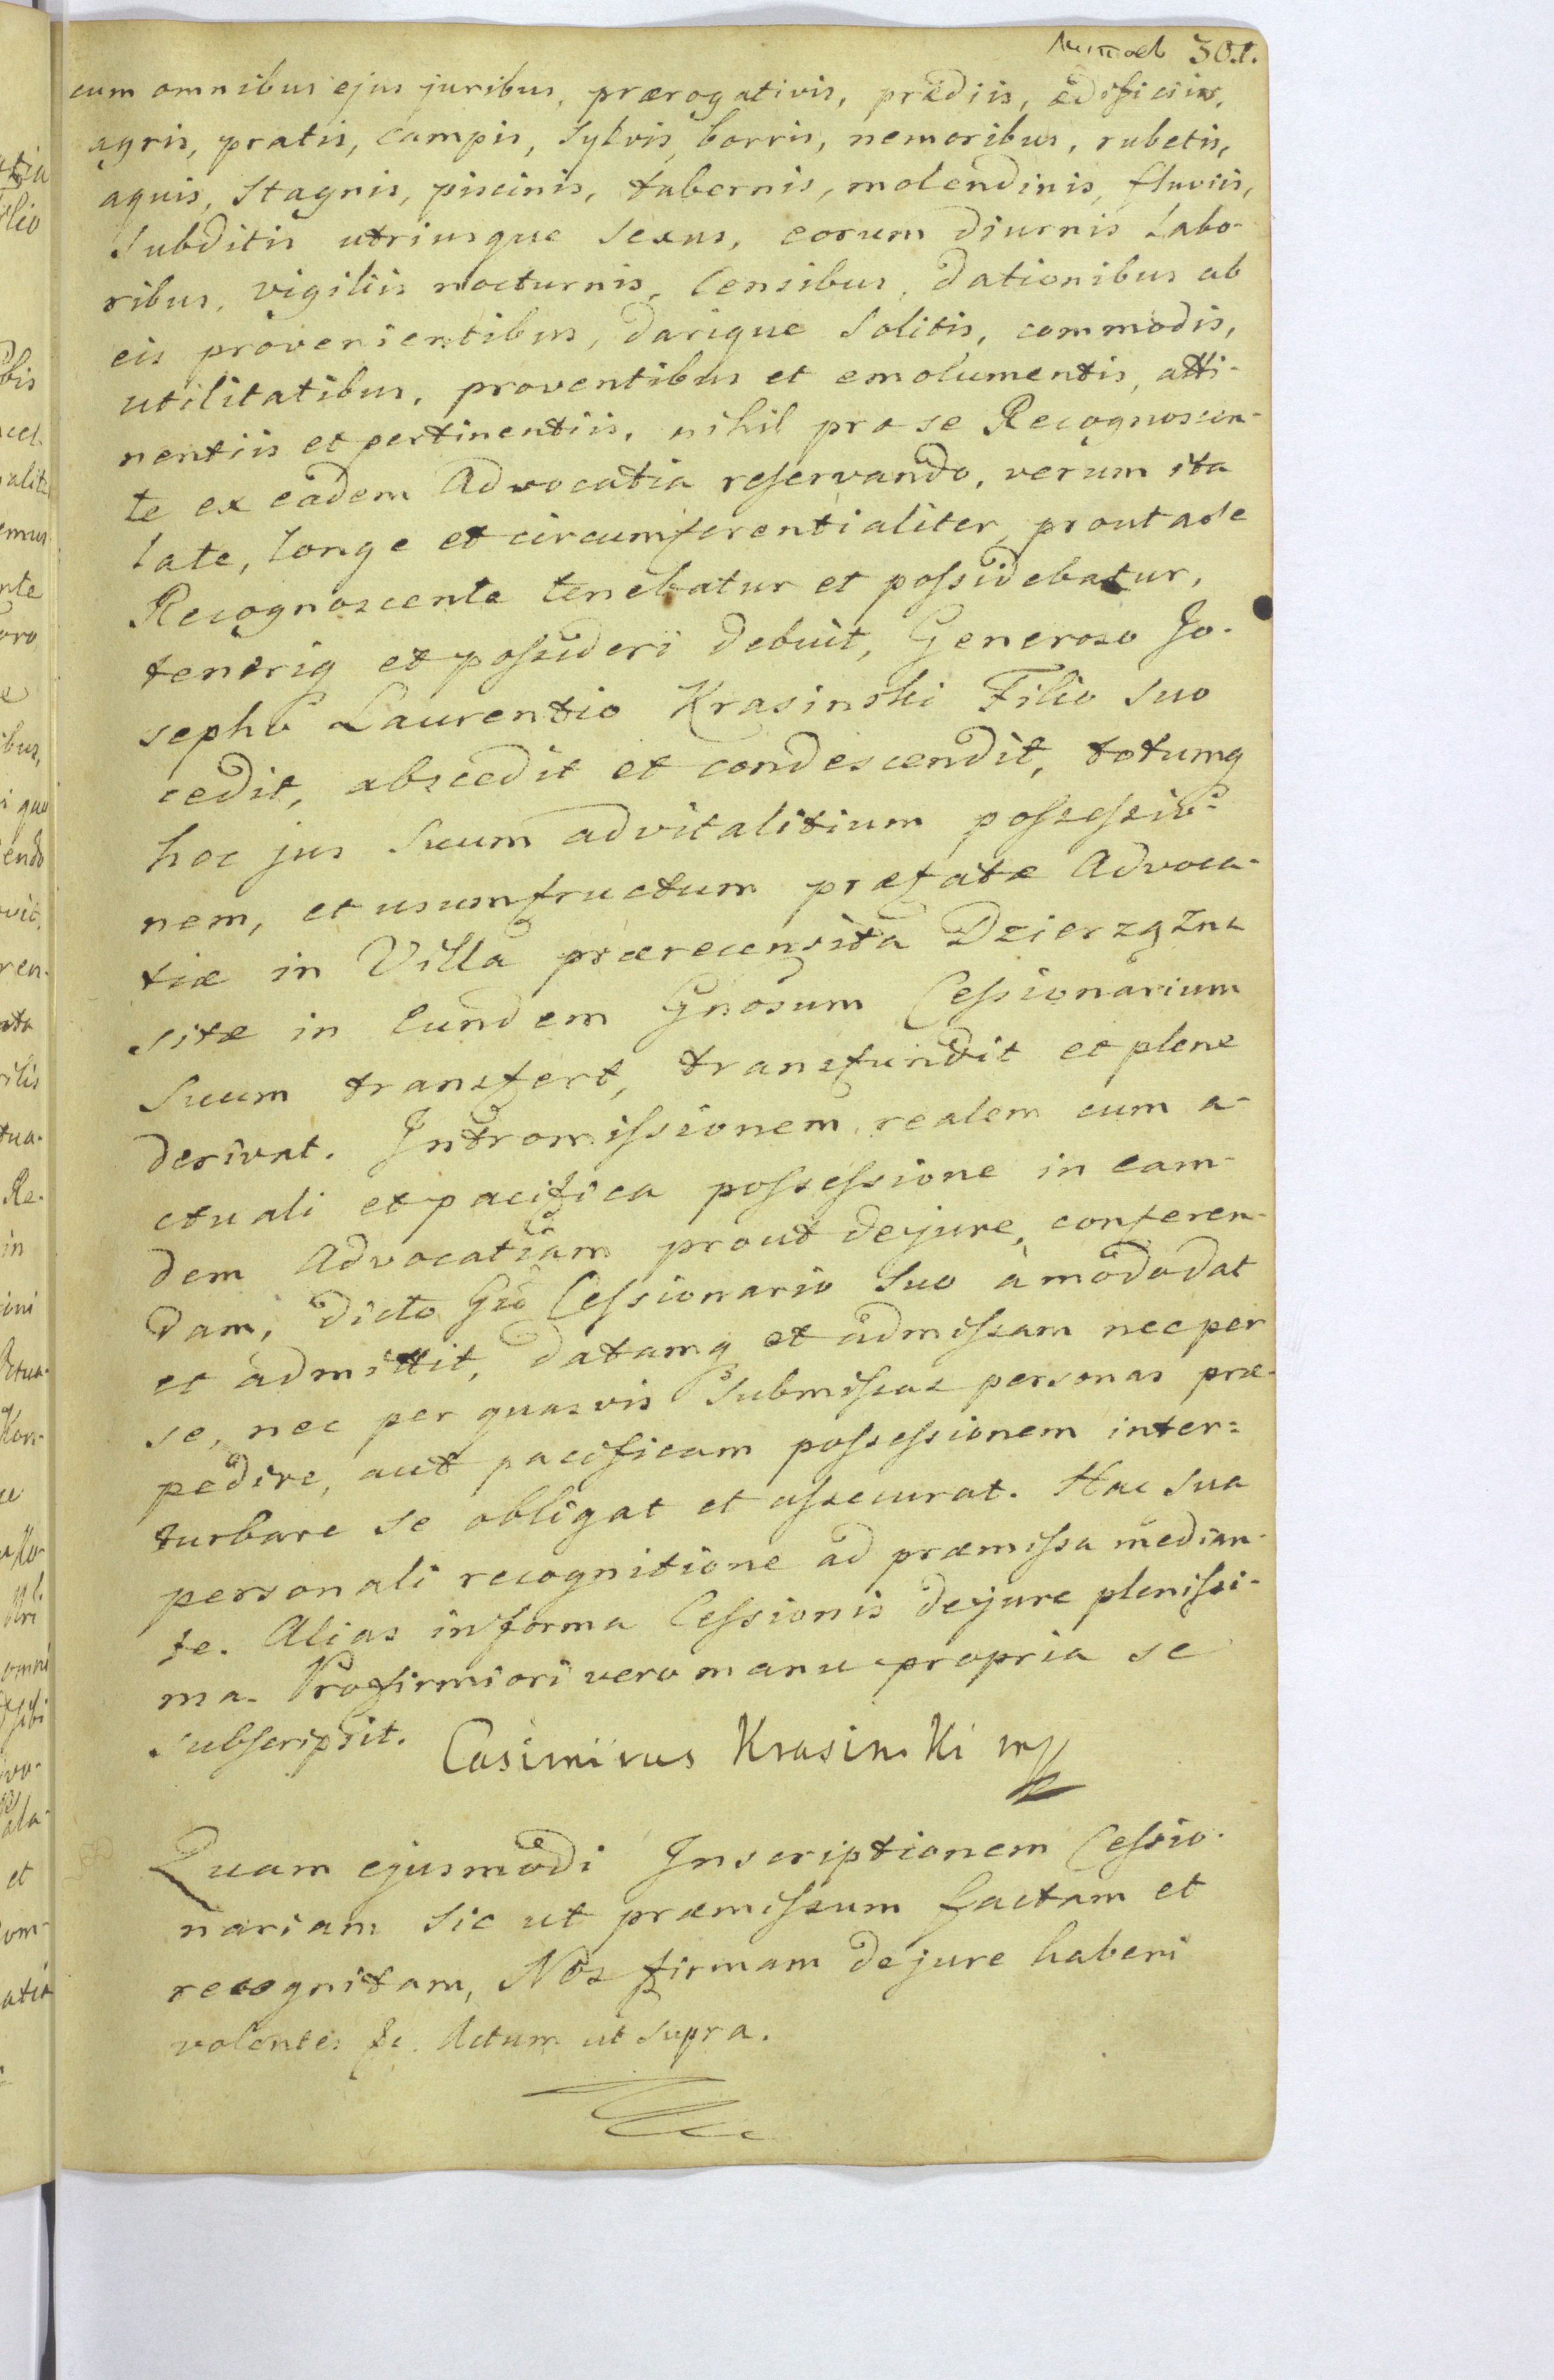 30.1.
cum omnibus ejus juribus, prærogativis, prædiis, ædificiis,
agris, pratis, campis, Sylvis, borris, nemoribus, rubetis,
aquis, Stagnis, piscinis, tabernis, molendinis, fluviis,
Subditis utriusque Sexus, eorum diurnis Labo-
ribus, vigiliis nocturnis, Censibus, dationibus ab
eis provenientibus, darique Solitis, commodis,
utilitatibus, proventibus et emolumentis, atti-
nentiis et pertinentiis, nihil pro se Recognoscen-
te ex eadem Advocatia reservando, verum ita
late, longe et circumferentialiter, prout a se
Recognoscente tenebatur et possidebatur,
teneriq et possideri debuit, Generoso Jo-
sepho Laurentio Krasinski Filio suo
cedit, abscedit et condescendit, totumq
hoc jus Suum advitalitium possessio-
nem, et usumfructum præfatæ Advoca-
tiæ in Villa prærecensita Dzierzążna
sitæ in Eundem Gnosum Cessionarium
Suum transfert, transfundit et plene
derivat. Intromissionem realem cum a-
ctuali et pacifica possessione in eam-
dem Advocatiam prout de jure, conferen-
dam, dicto Gso Cessionario Suo a modo dat
et admittit, datamq et admissam nec per
se, nec per quasvis Submissas personas præ-
pedire, aut pacificam possessionem inter=
turbare se obligat et assecurat. Hac sua
personali recognitione ad præmissa median-
te. Alias in forma Cessionis de jure plenissi-
ma. Pro firmiori vero manu propria se
subscripsit. Casimirus Krasinski mp
Quam ejusmodi Inscriptionem Cessio-
nariam Sic ut præmissum factam et
recognitam, Nos firmam de jure haberi
volentes &c. Actum ut supra.